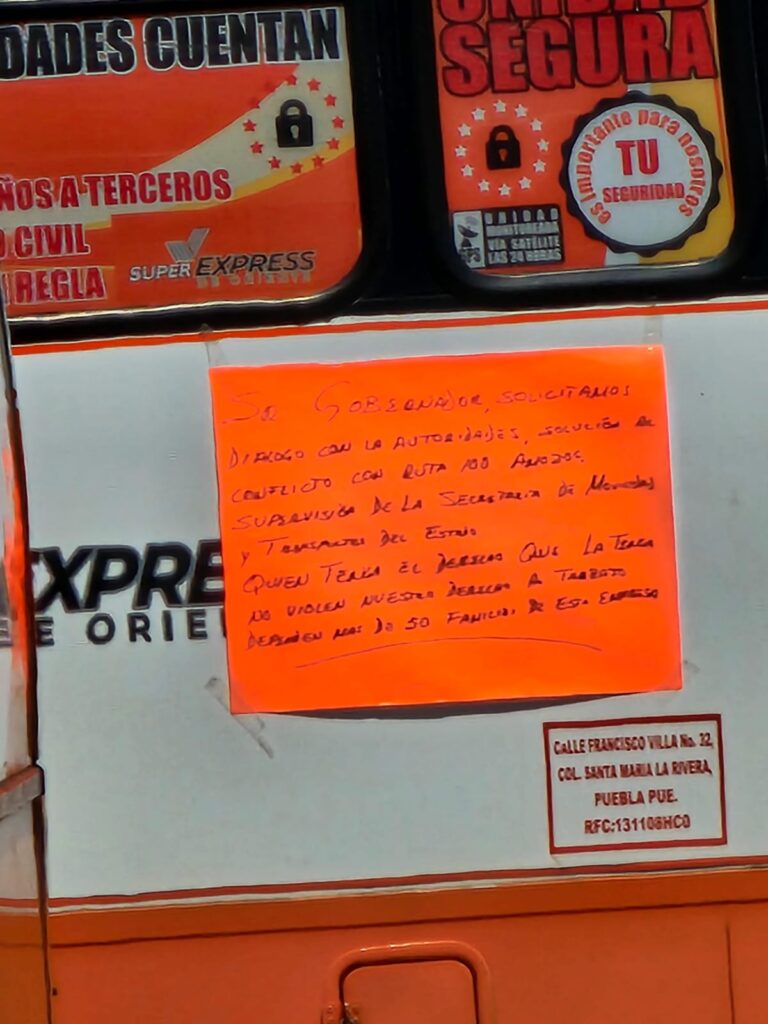 DADES CUENTAN
ÑOS A TERCEROS
O CIVIL
REGLA
SUPER EXPRESS
DE ORIENTE
UNIDAD
SEGURA
es importante para nosotros
TU
SEGURIDAD
UNIDAD
MONITOREADA
VÍA SATÉLITE
LAS 24 HORAS
GPS
SR GOBERNADOR, SOLICITAMOS
DIALOGO CON LA AUTORIDADES, SOLUCIÓN AL
CONFLICTO CON RUTA 100 AMOZOC.
SUPERVISIÓN DE LA SECRETARIA DE MOVILIDAD
Y TRANSPORTES DEL ESTADO
QUIEN TENGA EL DERECHO QUE LA TENGA
NO VIOLEN NUESTRO DERECHO A TRABAJO
DEPENDEN MAS DE 50 FAMILIAS DE ESTA EMPRESA
EXPRE
E ORIE
CALLE FRANCISCO VILLA No. 32,
COL. SANTA MARIA LA RIVERA,
PUEBLA PUE.
RFC:131106HC0